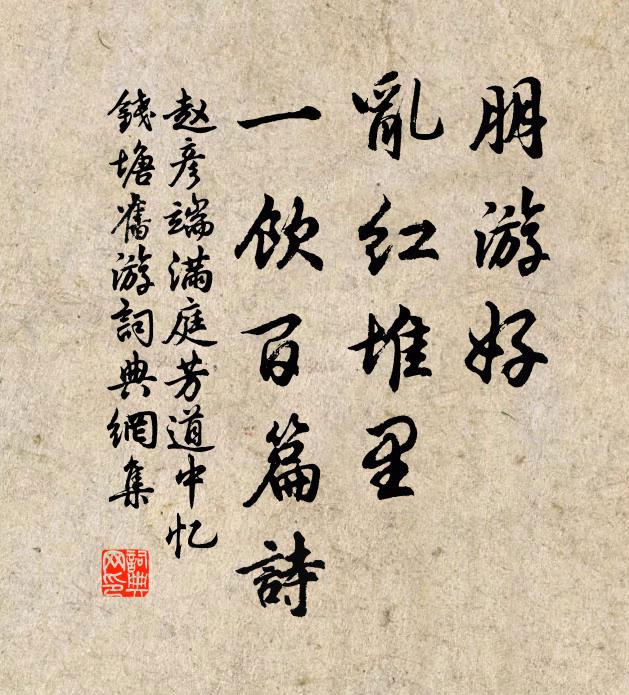 朋游好
亂红堆里
一饮百篇詩
赵彦端满庭芳道中忆
錢塘舊游詞典網集
詞典网印